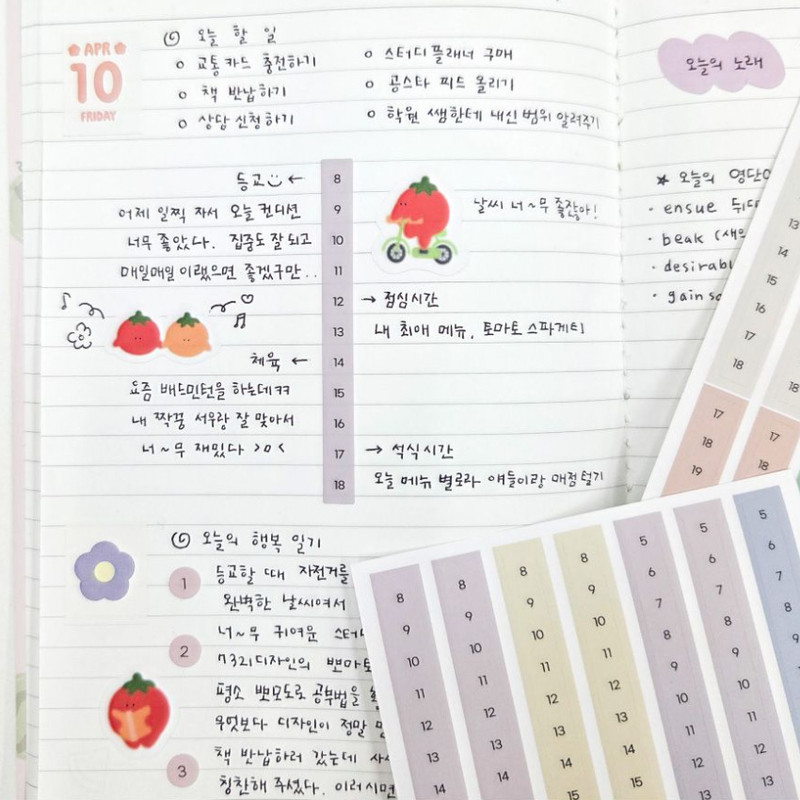 APR
10
FRIDAY
오늘 할 일
교통카드 충전하기
책 반납하기
상담 신청하기
스터디플래너 구매
공스타 피드 올리기
학원 쌤한테 내신범위 알려주기
오늘의 노래
등교 ←
어제 일찍 자서 오늘 컨디션
너무 좋았다. 집중도 잘 되고
매일매일 이랬으면 좋겠구만..
체육 ←
요즘 배드민턴을 하는데 ㅋㅋ
내 짝꿍 서우랑 잘 맞아서
너~무 재밌다 >ㅁ<
8
9
10
11
12
13
14
15
16
17
18
날씨 너~무 좋잖아!
→ 점심시간
내 최애 메뉴, 토마토 스파게티
→ 석식시간
오늘 메뉴 별로라 얘들이랑 매점털기
★ 오늘의 영단어
· ensue 뒤따
· beak (새의
· desirabl
· gain
오늘의 행복 일기
1
등교할 때 자전거를
완벽한 날씨여서
2
너~무 귀여운 스터
7321디자인의 뽀마토
평소 뽀모도로 공부법을
무엇보다 디자인이 정말
3
책 반납하러 갔는데 사
칭찬해 주셨다. 이러시면
13
14
15
16
17
18
17
18
19
18
17
18
8
9
10
11
12
13
14
8
9
10
11
12
13
14
8
9
10
11
12
13
14
15
8
9
10
11
12
13
14
15
5
6
7
8
9
10
11
12
13
5
6
7
8
9
10
11
12
13
5
6
7
8
9
10
11
12
13